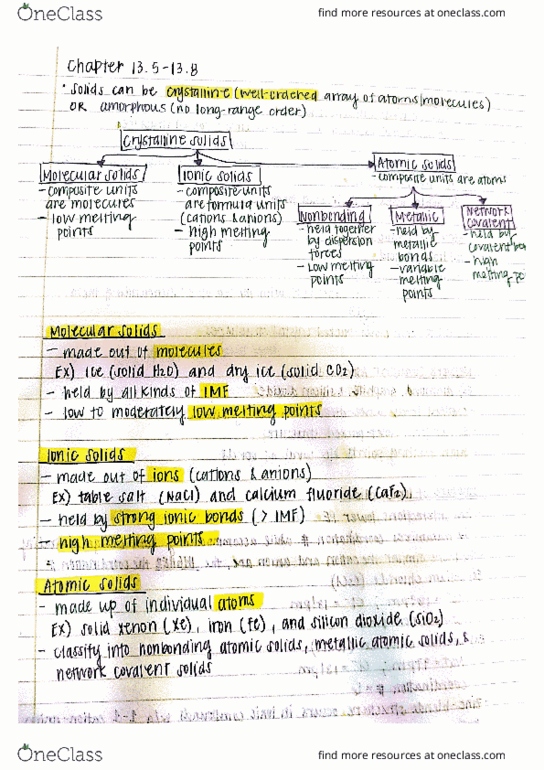 OneClass
find more resources at oneclass.com
Chapter 13.5-13.8
· Solids can be crystalline (well-ordered array of atoms/molecules)
OR amorphous (no long-range order)
Crystalline solids
Molecular solids
- composite units
are molecules
- low melting
points
Ionic solids
- composite units
are formula units
(cations & anions)
- high melting
points
Atomic solids
- composite units are atoms
Nonbonding
- held together
by dispersion
forces
- Low melting
points
Metallic
- held by
metallic
bonds
- variable
melting
points
Network
covalent
- held by
covalent
- high
melting
Molecular solids
- made out of molecules
Ex) ice (solid H2O) and dry ice (solid CO2)
- held by all kinds of IMF
- low to moderately low melting points
Ionic solids
- made out of ions (cations & anions)
Ex) table salt (NaCl) and calcium fluoride (CaF2)
- held by strong ionic bonds (> IMF)
- high melting points
Atomic solids
- made up of individual atoms
Ex) solid xenon (Xe), iron (Fe), and silicon dioxide (SiO2)
- classify into nonbonding atomic solids, metallic atomic solids, &
network covalent solids
OneClass
find more resources at oneclass.com